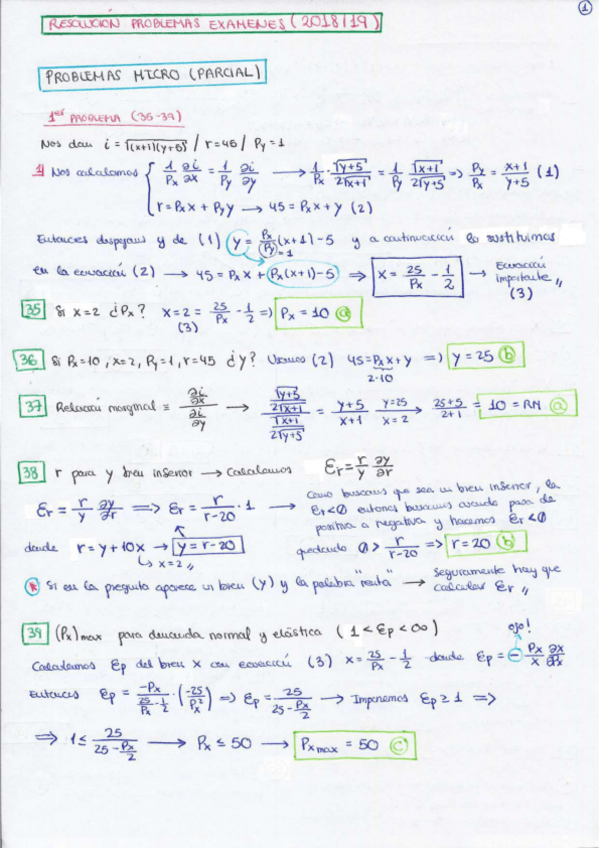 1
RESOLUCIÓN PROBLEMAS EXAMENES (2018/19)
PROBLEMAS MICRO (PARCIAL)
1er PROBLEMA (35-39)
Nos dan i = √(x+1)(y+5) / r=45 / Py=1
1) Nos calculamos { 1/Px ∂i/∂x = 1/Py ∂i/∂y → 1/Px · √y+5/2√x+1 = 1/Py √x+1/2√y+5 => Py/Px = x+1/y+5 (1)
r = Px x + Py y → 45 = Px x + y (2)
Entonces despejamos y de (1) y = Px/Py (x+1) - 5 y a continuación lo sustituimos
=1
en la ecuación (2) → 45 = Px x + Px(x+1) - 5 ⇒ x = 25/Px - 1/2 → Ecuación importante (3)
35 Si x=2 ¿Px? x = 2 = 25/Px - 1/2 => Px = 10 a
(3)
36 Si Px=10, x=2, Py=1, r=45 ¿Y? Usamos (2) 45 = Px x + y => y = 25 b
2·10
37 Relación marginal ≡ ∂i/∂x / ∂i/∂y → √y+5/2√x+1 / √x+1/2√y+5 = y+5/x+1 y=25 x=2 → 25+5/2+1 = 10 = RM a
38 r para y bien inferior → Calculamos Er = r/y ∂y/∂r
Er = r/y ∂y/∂r => Er = r/r-20 · 1 → Como buscamos que sea un bien inferior, la
Er<0 entonces buscamos cuando pasa de
positiva a negativa y hacemos Er<0
donde r = y + 10x → y = r-20 quedando 0 > r/r-20 => r = 20 b
x = 2
* Si en la pregunta aparece un bien (y) y la palabra "renta" → Seguramente hay que
calcular Er
39 (Px)max para demanda normal y elástica (1 < Ep < ∞) ojo!
Calculamos Ep del bien x con ecuación (3) x = 25/Px - 1/2 donde Ep = - Px/x ∂x/∂Px
Entonces Ep = -Px/25/Px - 1/2 · (-25/Px²) => Ep = 25/25 - Px/2 → Imponemos Ep ≥ 1 =>
⇒ 1 ≤ 25/25 - Px/2 → Px ≤ 50 → Px max = 50 c